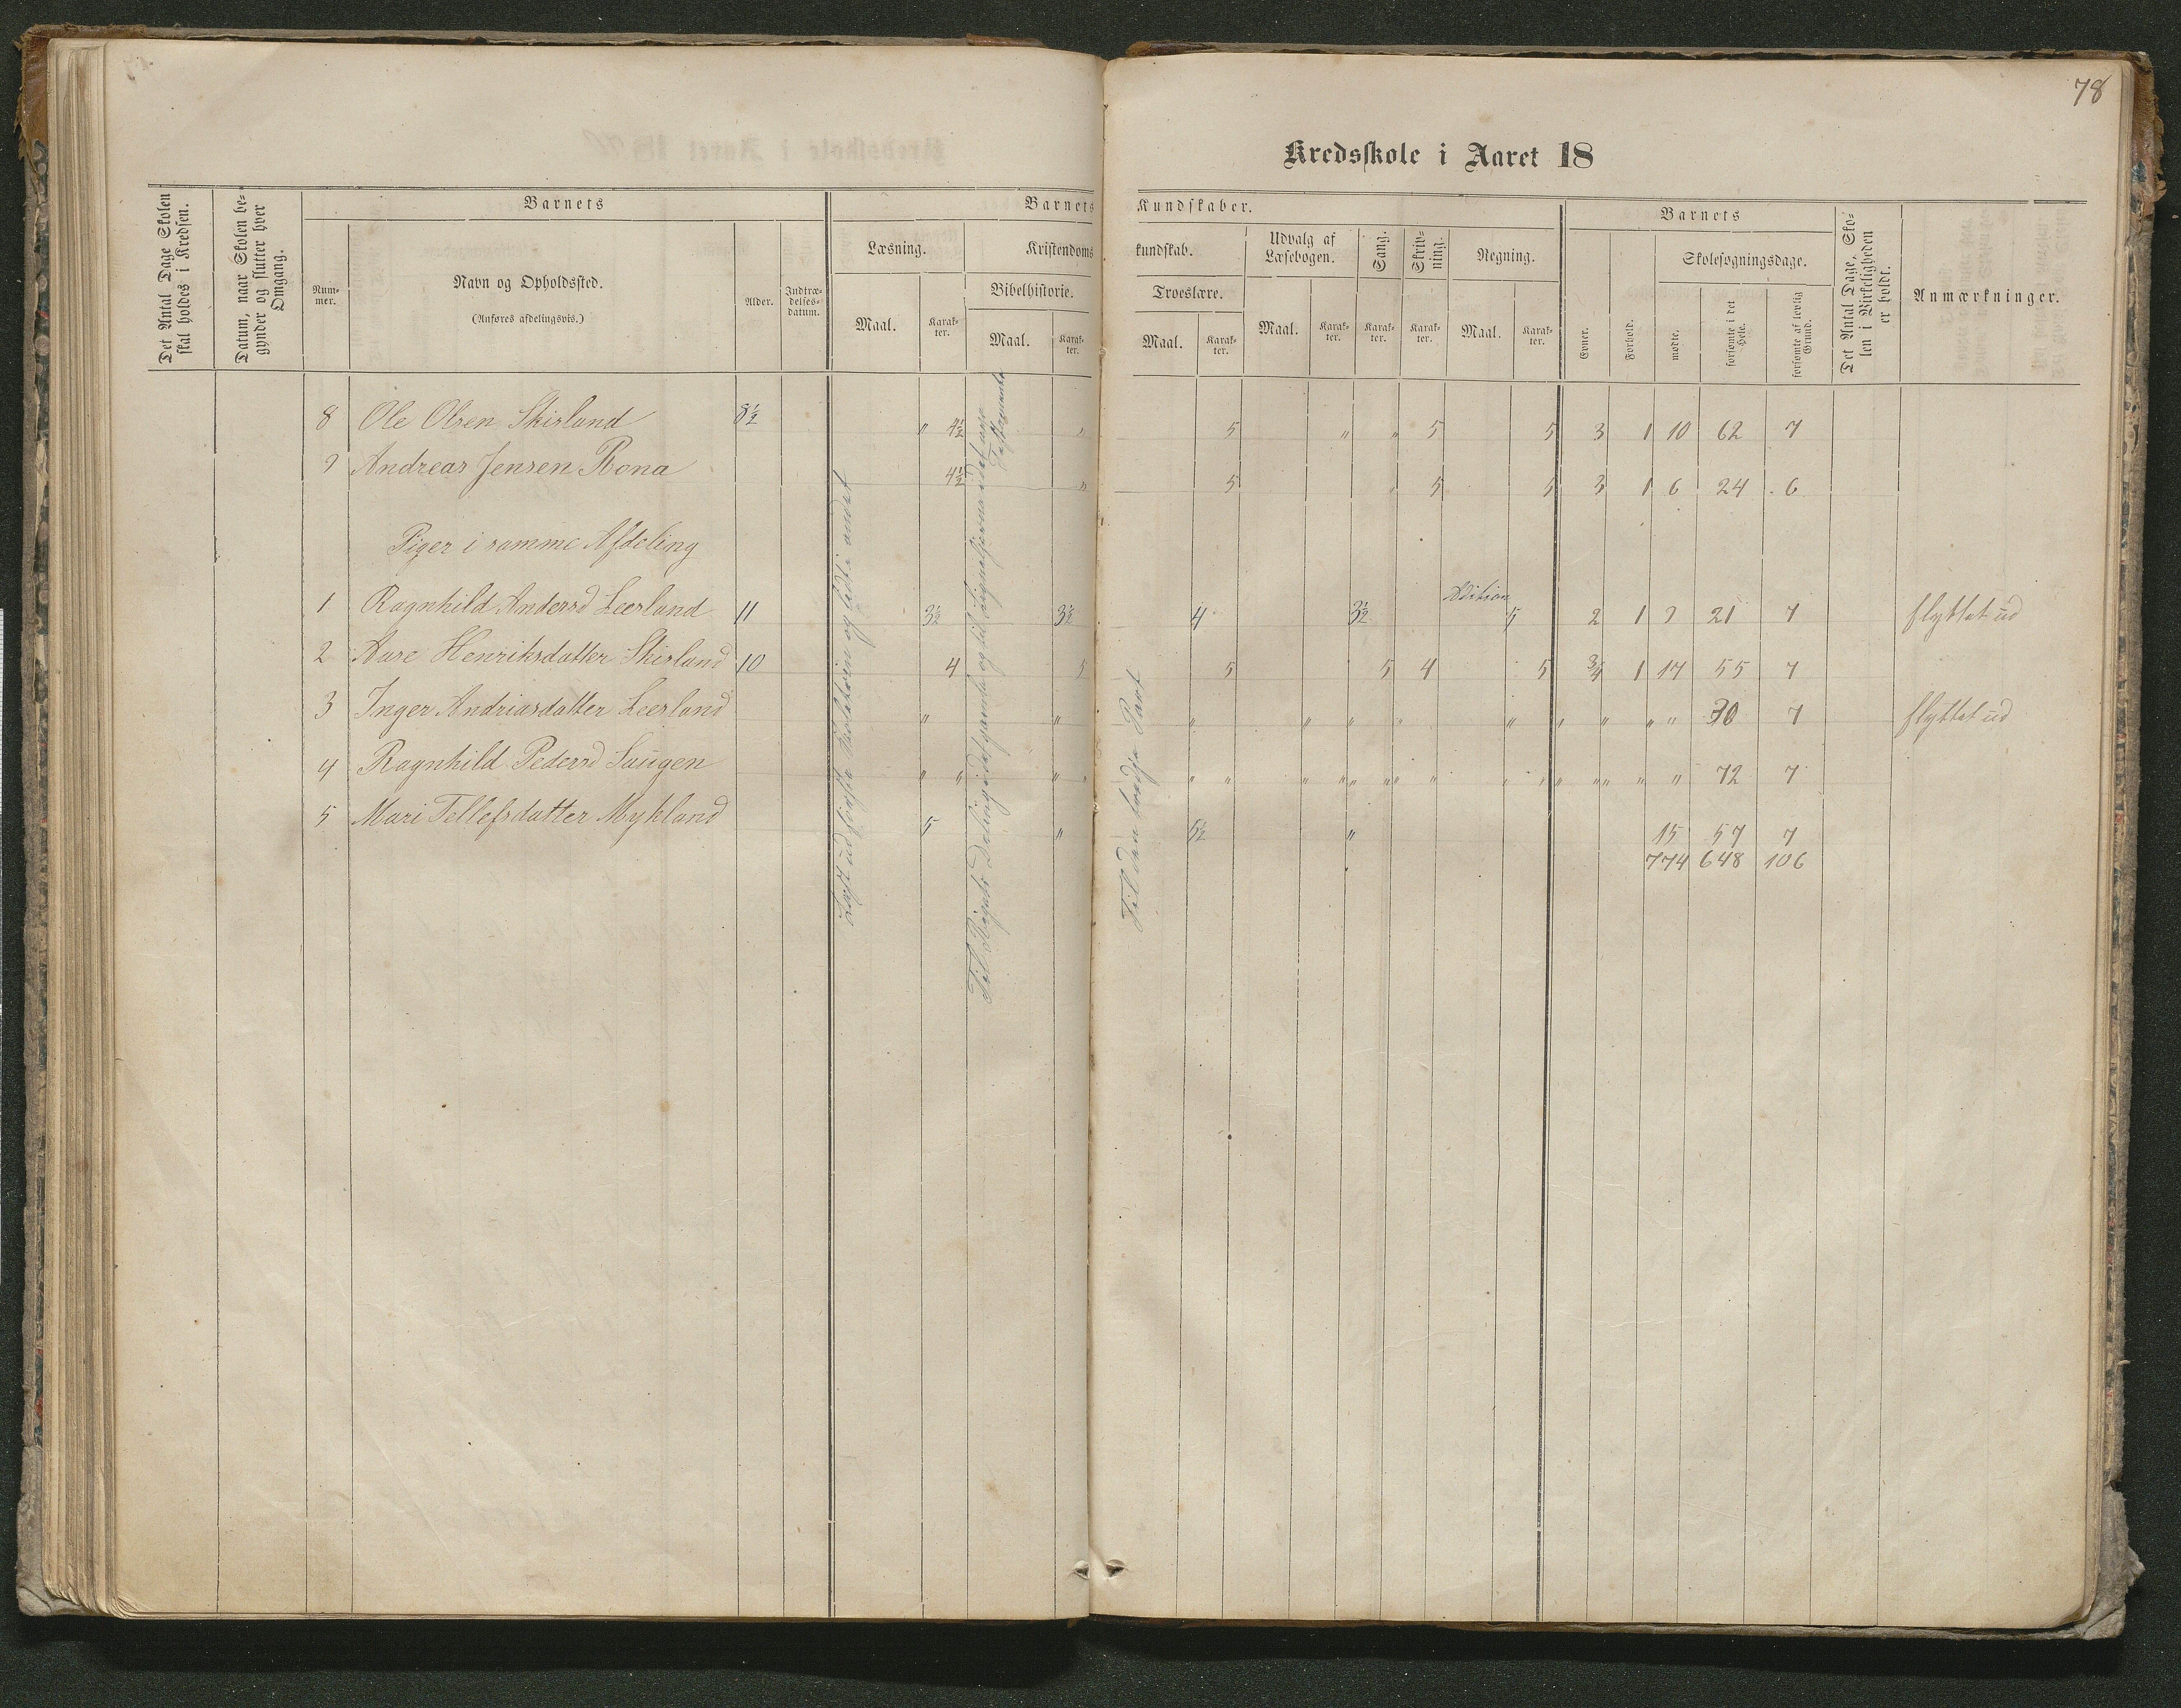 78
Kredsskole i Aaret 18
Det Antal Dage Skolen skal holdes i Kredsen.
Datum, naar Skolen begynder og slutter hver Omgang.
Barnets
Nummer.
Navn og Opholdssted.
(Anføres afdelingsvis.)
Alder.
Indtrædelsesdatum.
Barnets Kundskaber.
Læsning.
Maal.
Karakter.
Kristendomskundskab.
Bibelhistorie.
Maal.
Karakter.
Troeslære.
Maal.
Karakter.
Udvalg af Læsebogen.
Maal.
Karakter.
Sang.
Karakter.
Skrivning.
Karakter.
Regning.
Maal.
Karakter.
Barnets
Evner.
Forhold.
Skolesøgningsdage.
mødte.
forsømte i det Hele.
forsømte af lovlig Grund.
Det Antal Dage, Skolen i Virkeligheden er holdt.
Anmærkninger.
8 Ole Olsen Skisland 8½ " 4½ " 5 " " 5 5 3 1 10 62 7
9 Andreas Jensen Rona 4½ " 5 " 5 5 3 1 6 24 6
Piger i samme Afdeling
1 Ragnhild Andersd Leerland 11 3½ 3½ 4 3½ Adition 5 2 1 9 21 7 flyttet ud
2 Aase Henriksdatter Skisland 10 4 5 5 5 4 5 3/4 1 17 55 7
3 Inger Andriasdatter Leerland " " " " " " " " " " " 30 7 flyttet ud
4 Ragnhild Pedersd Haugen " " " " " " " " " " " " " " " 72 7
5 Mari Tellefsdatter Mykland 5 " 5½ " 15 57 7
774 648 106
Til den tredje Part